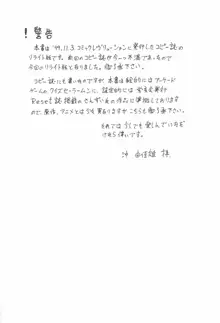 ！警告
本書は'99.11.3 コミックレヴォリューションに発行したコピー誌の
リライト版です。前回のコピー誌が今一つ不満であったので
今回のリライト版と有りました。御了承下さい。
コピー誌にも書いたのですが、本書は絵的にはアーケード
ゲームの、クイズセーラームーンに、設定的には
Reset誌掲載の作品に準拠しております
ので、原作、アニメとは異なりますがこちらも御了承下さい。
それでは少しでも楽しんでいただ
けたら倖いです。
沖 由佳雄 拝